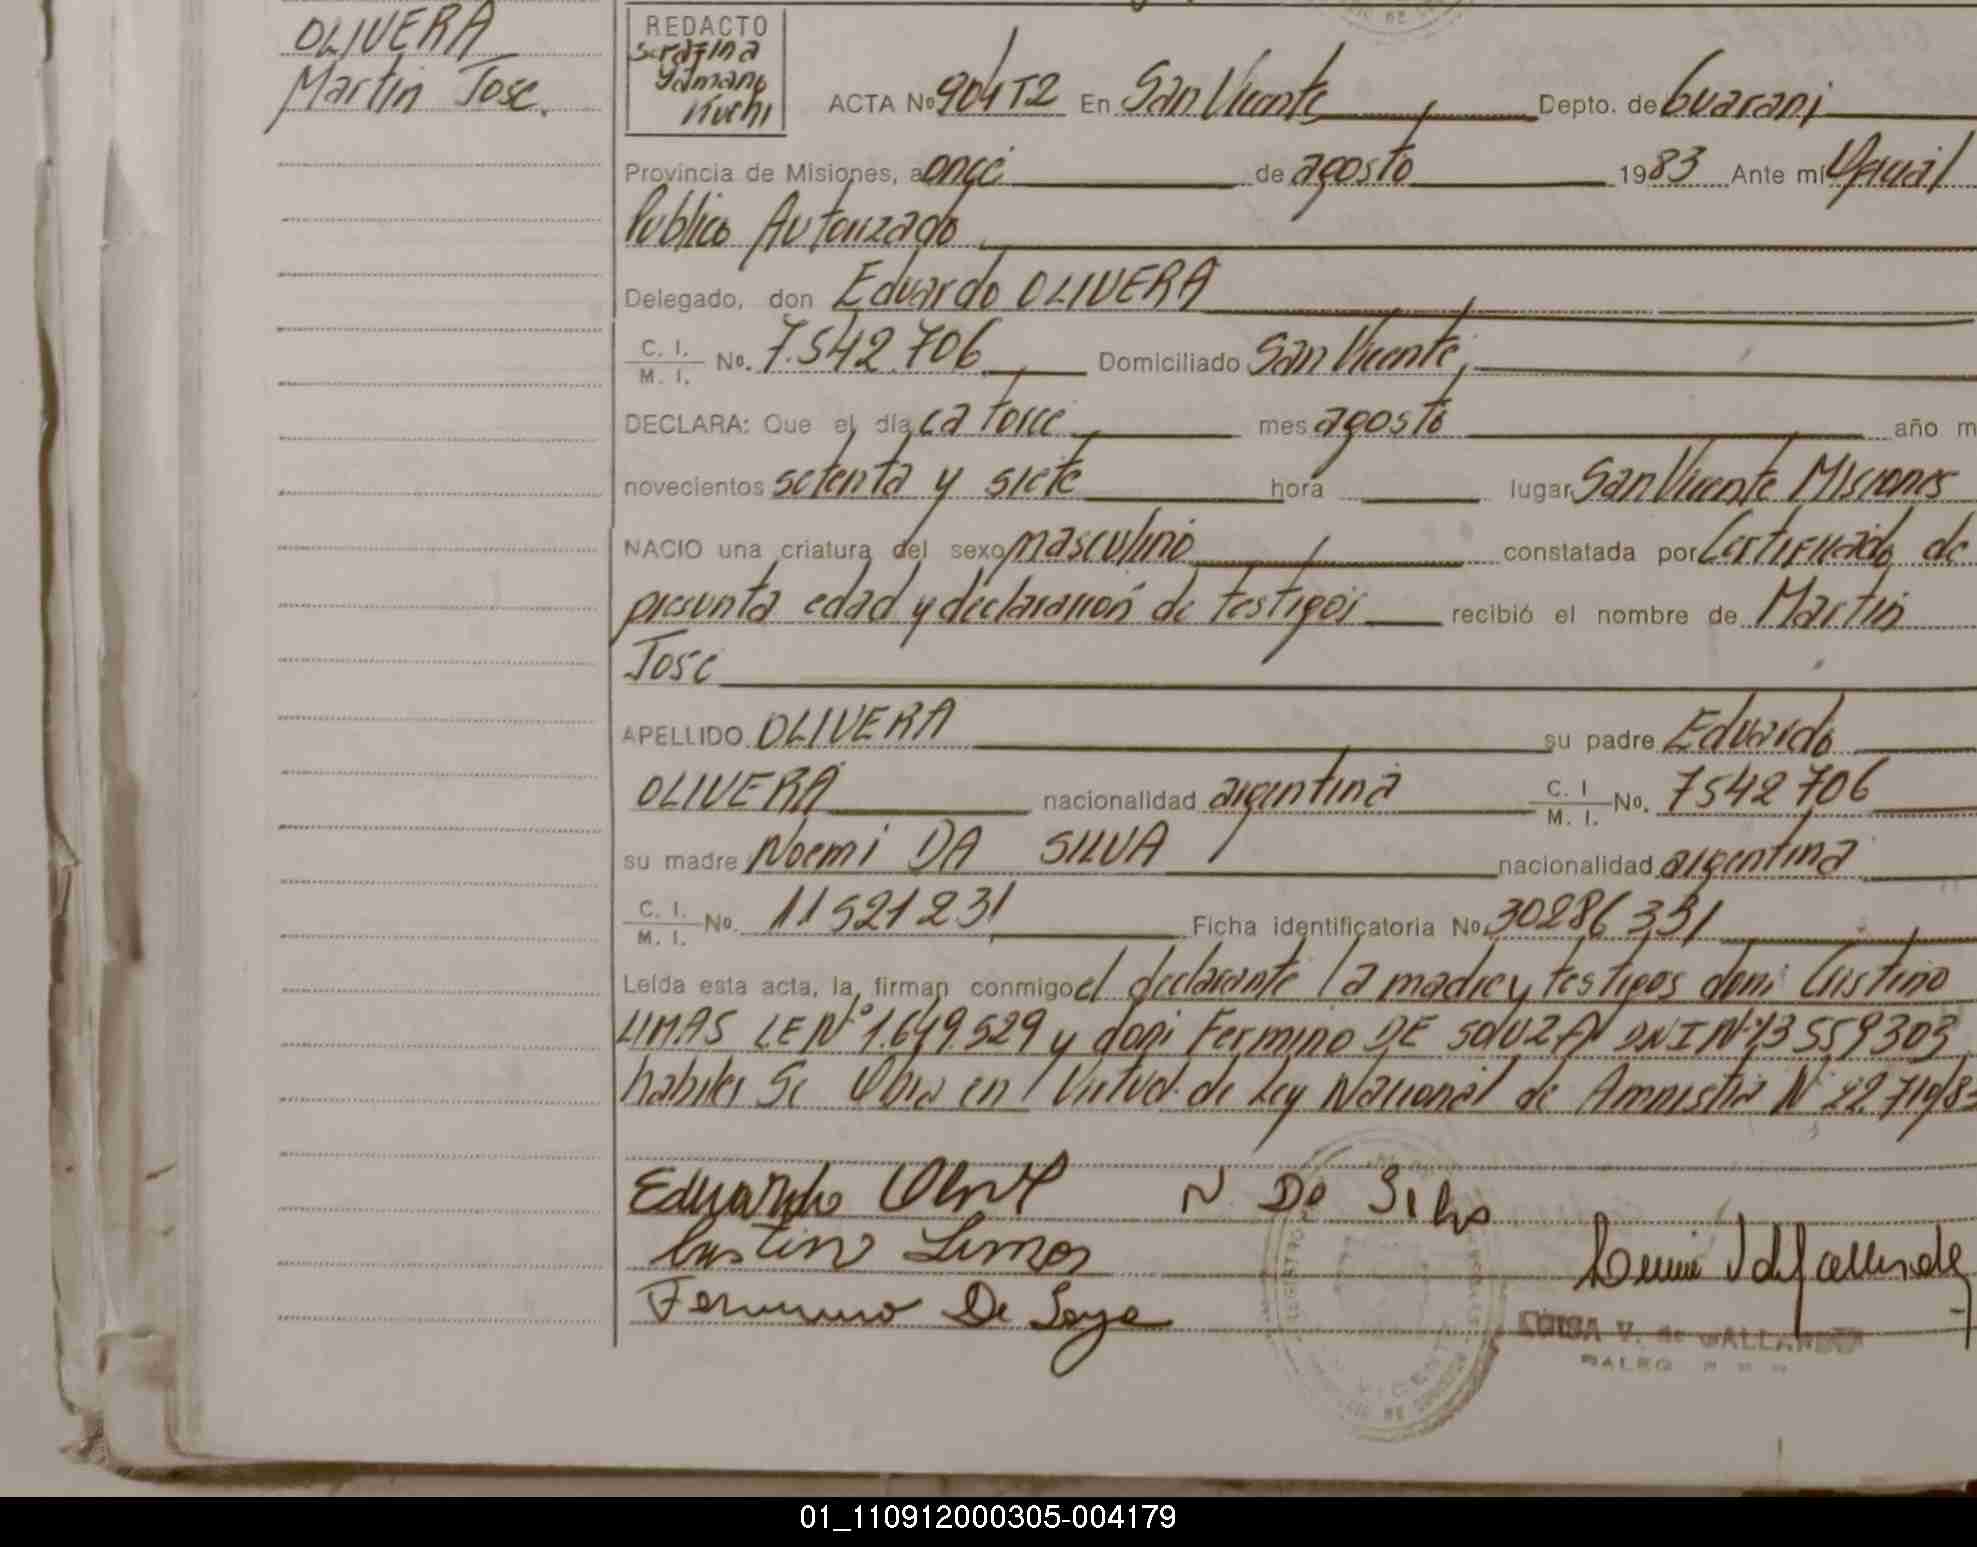 OLIVERA
Martin Jose.
REDACTO
Serafina
Yamano
Kuchi
ACTA No 904T2 En San Vicente Depto. de Guarani
Provincia de Misiones, a once de agosto 1983 Ante mi Oficial
Publico Autorizado
Delegado, don Eduardo OLIVERA
C. I.
M. I. No. 7.542.706 Domiciliado San Vicente
DECLARA: Que el día catorce mes agosto año m
novecientos setenta y siete hora lugar San Vicente Misiones
NACIO una criatura del sexo masculino constatada por Certificado de
presunta edad y declaración de testigos recibió el nombre de Martin
Jose
APELLIDO OLIVERA su padre Eduardo
OLIVERA nacionalidad argentina C. I. M. I. No. 7542706
su madre Noemi DA SILVA nacionalidad argentina
C. I.
M. I. No. 11521231 Ficha identificatoria No. 30286331
Leída esta acta, la firman conmigo el declarante la madre y testigos don: Cristino
LIMAS LE Nº 1.649.529 y don: Fermino DE SOUZA DNI Nº 13559303
habiles Se Obra en Virtud de Ley Nacional de Amnistia Nº 22.719/83
Eduardo N Da Silva
Limos
Fermino De
LUISA V. de GALLARDO
01_110912000305-004179